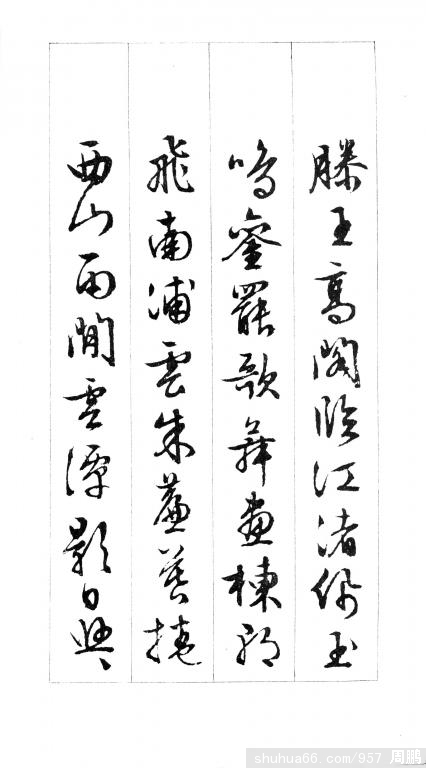 滕王高閣臨江渚佩玉
鳴鑾罷歌舞畫棟朝
飛南浦雲朱簾暮捲
西山雨閒雲潭影日悠々
shuhua66.com/957 周鹏